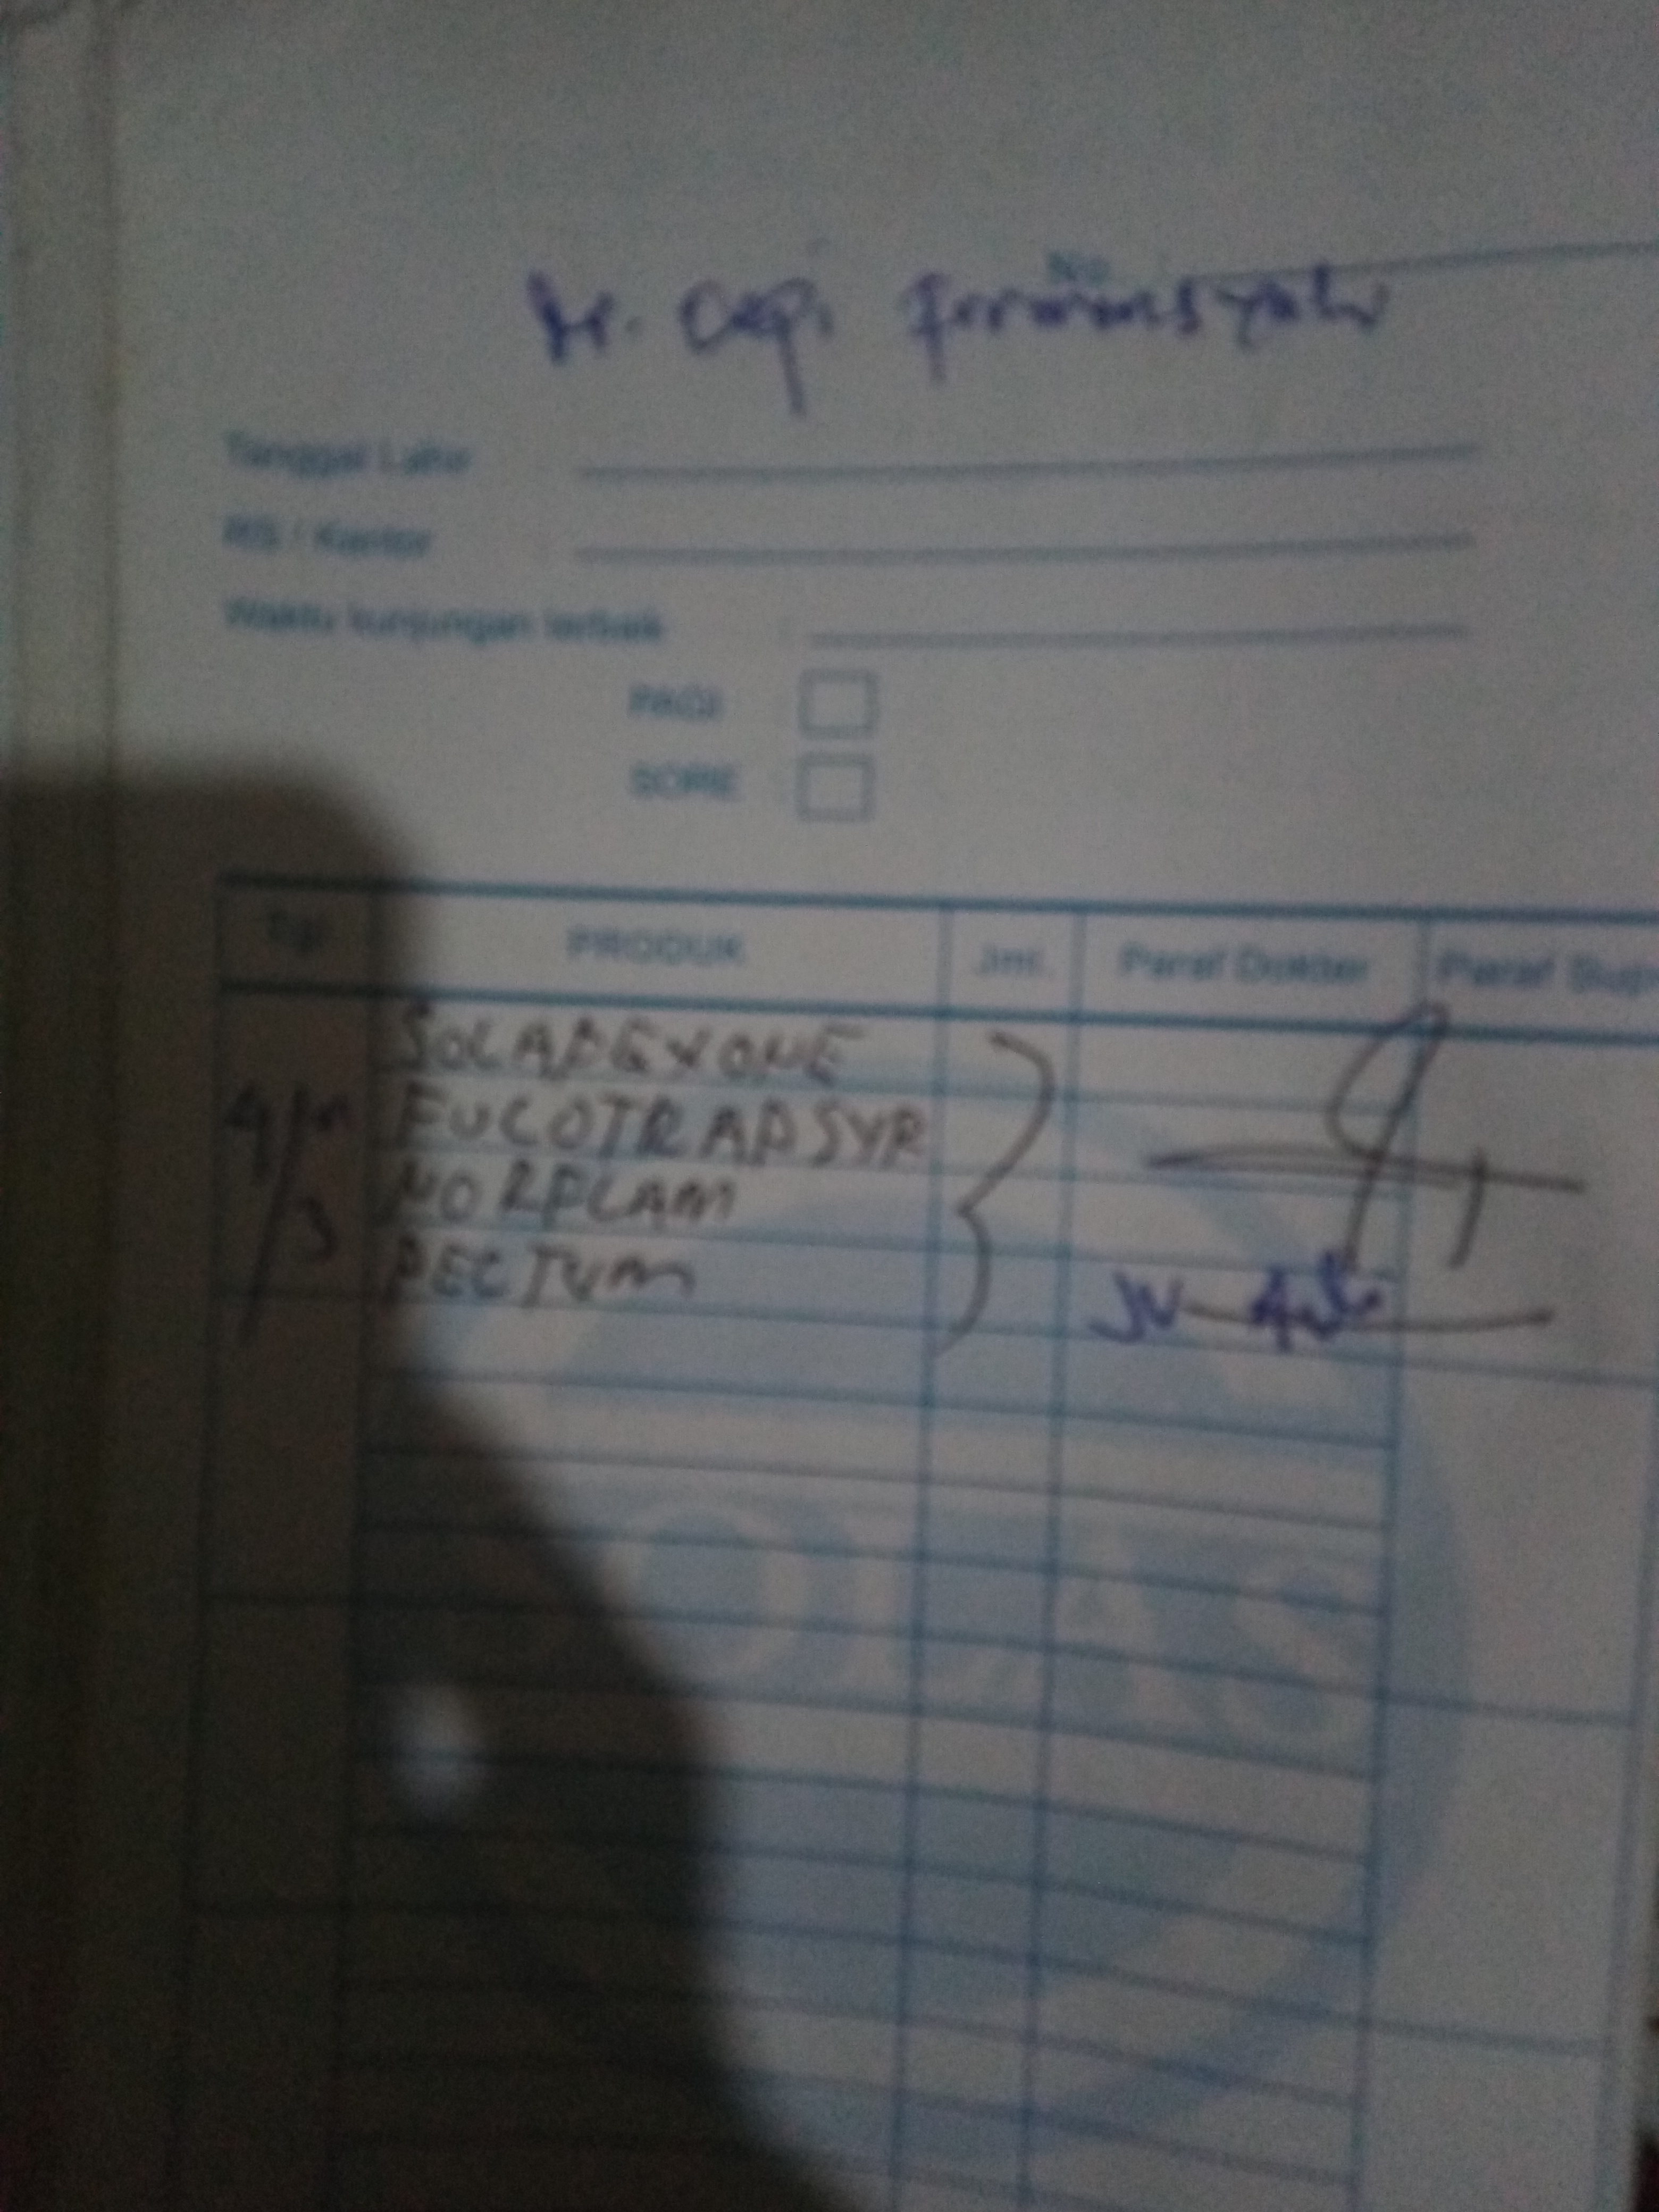 No.
dr. Cepi firmansyah
Tanggal Lahir :
RS / Kantor :
Waktu kunjungan terbaik :
PAGI
SORE
Tgl PRODUK Jml. Paraf Dokter Paraf
SOLADEXONE
FUCOTRAP SYR
NORPLAM
PECTUM
JV